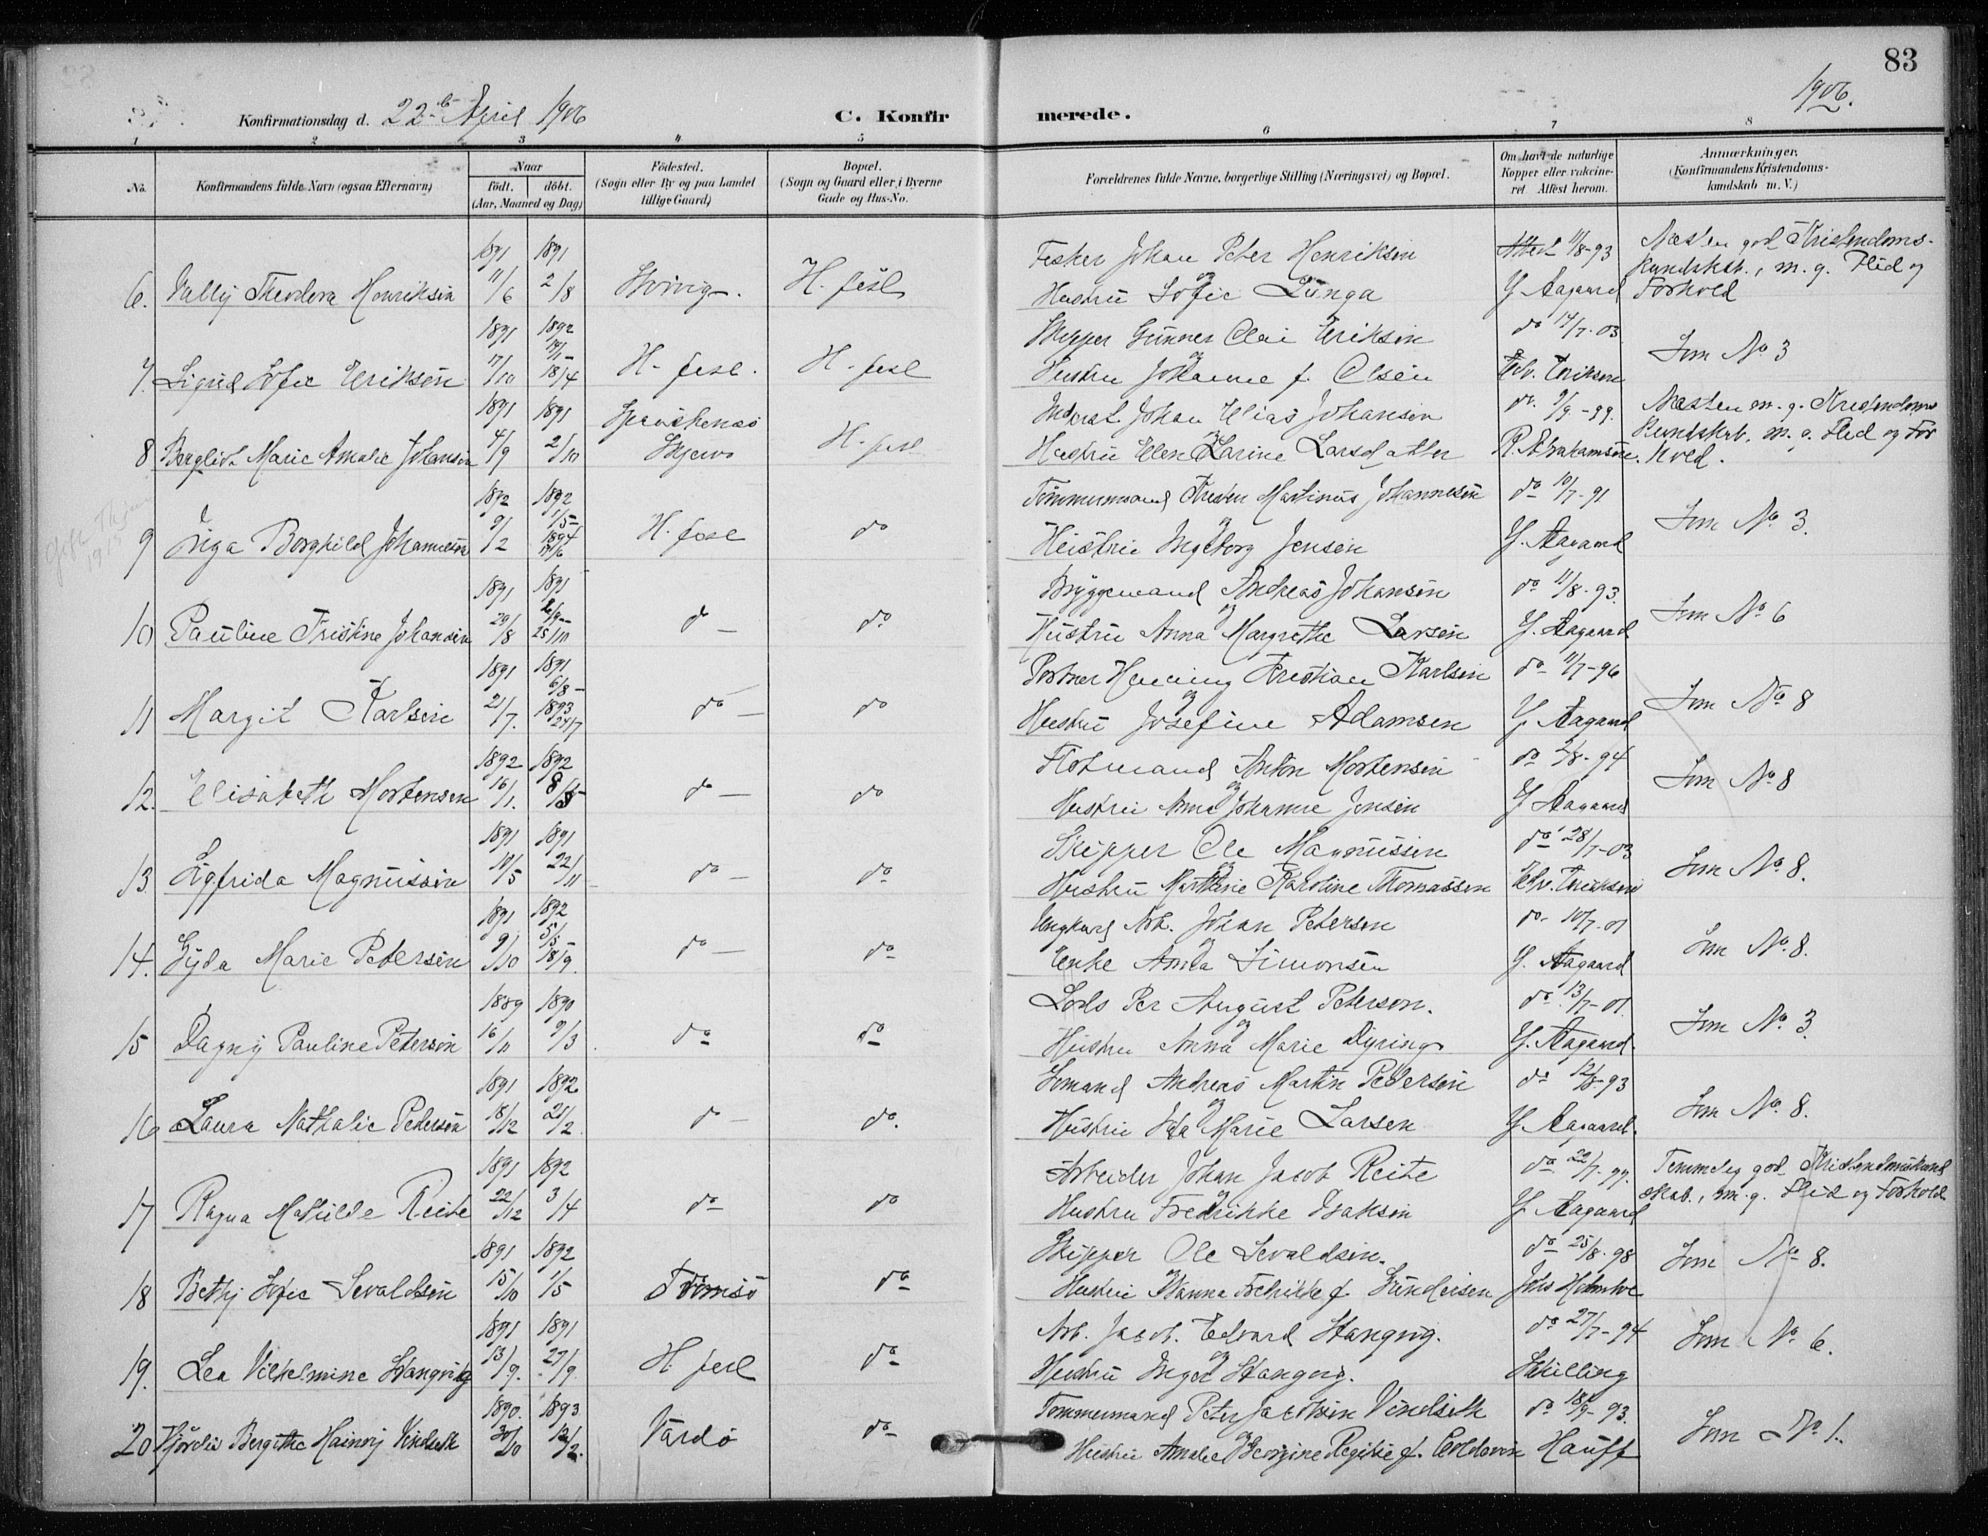 83
1906.
Konfirmationsdag d. 22de April 1906
C. Konfirmerede.
1 2 3 4 5 6 7 8
No.
Konfirmandens fulde Navn (ogsaa Efternavn)
Naar
födt. döbt.
(Aar, Maaned og Dag)
Födested.
(Sogn eller By og paa Landet
tillige Gaard)
Bopæl.
(Sogn og Gaard eller i Byerne
Gade og Hus-No.
Forældrenes fulde Navne, borgerlige Stilling (Næringsvei) og Bopæl.
Om havt de naturlige
Kopper eller vaccine-
ret Attest herom.
Anmærkninger.
(Konfirmandens Kristendoms-
kundskab m. V.)
1891 1891 Fisker Johan Peter Henriksen Attest 11/8-93 Næsten god Kristendoms-
kundskab, m. g. Flid og
6. Vally Theodora Henriksen 11/6 2/8 H. fest og Hustru Sofie Lunga Y. Aagaard Forhold
1891 1892 Skipper Gunner Olai Eriksen do 14/7-03
7. Sigrid Sofie Eriksen 17/10 18/4 H. fest. H. fest og Hustru Johanne f. Olsen Edv. Eriksen Som No 3
1891 1891 Johan Elias Johansen do. 9/9-99. Næsten m. g. Kristendoms
Kundskab. m. g. Flid og For
8 Bergliot Marie Amalie Johansen 4/9 2/10 Skjervö H. fest og Hustru Elen Karine Larsdatter R. Abrahamsen. hold.
1892 1892 Tömmermand Kristen Martinus Johannesen do 10/7-91
9 Inga Borghild Johannesen 9/2 1/5 1894 H. fest do og Hustru Ingeborg Jensen Y. Aagaard Som No 3.
1891 1891 Bryggemand Andreas Johansen do 11/8-93.
10 Pauline Kristine Johansen 29/8 25/10 do do og Hustru Anna Margrethe Larsen Y. Aagaard Som No 6
1891 1891 6/8 Portner Henning Kristian Karlsen do 11/7-96
11 Margit Karlsen 21/7. 1893 do do og Hustru Josefine Adamsen Y. Aagaard Som No 8
1892 1892 Flotmand Anton Mortensen do 2/8-94
12. Elisabeth Mortensen 16/1. do do og Hustru Anna Johanne Jensen Y. Aagaard Som No 8
1891 1891 Skipper Ole Magnussen do 28/7-03
13. Sigfrida Magnussen 22/11 do do og Hustru Karoline Thomassen Edv. Eriksen Som No 8.
1891 1892 Ungkarl Arb. Johan Petersen do 10/7-01
14. Gyda Marie Petersen 9/10 18/9. do do og Enke Anna Simonsen Y. Aagaard Som No 8.
1889 1890 Lods Per August Peterson. do 13/7-01.
15 Dagny Pauline Peterson 16/11 9/3 do do og Hustru Anna Marie Dyring Y. Aagaard. Som No 3
1891 1892 Sömand Andreas Martin Pedersen do 12/8-93
16 Laura Nathalie Pedersen 18/12 21/2. do do. og Hustru Ida Marie Larsen Y. Aagaard. Som No 8.
1891 1892 Arbeider Johan Jacob Reite do 22/7-97. Temmelig god Kristendomskund
17 Ragna Mathilde Reite 22/12 3/4 do do og Hustru Fredrikke Isaksen Y. Aagaard skab, m. g. Flid og Forhold
1891 1892 Skipper Ole Sevaldsen. do 25/8-98
18 Bethy Sofie Sevaldsen 15/10 1/5 Tromsö do og Hustru Hanna Fredrikke f. Gundersen Som No 8.
1891 1891 Arb. Jacob Edvard Stangvig. do 27/7-94
19. Lea Vilhelmine Stangvig 13/9. 27/9. H. fest do og Hustru Inger Stangvig. Skilling Som No 6.
1890. 1893 Tömmermand Peter Jacobsen Vindseth do 18/9-93.
20 Hjördis Bergithe Vindseth 30/10 12/2. Vardö do og Hustru Amalie Georgine Regine f. Hauff Som No 1.